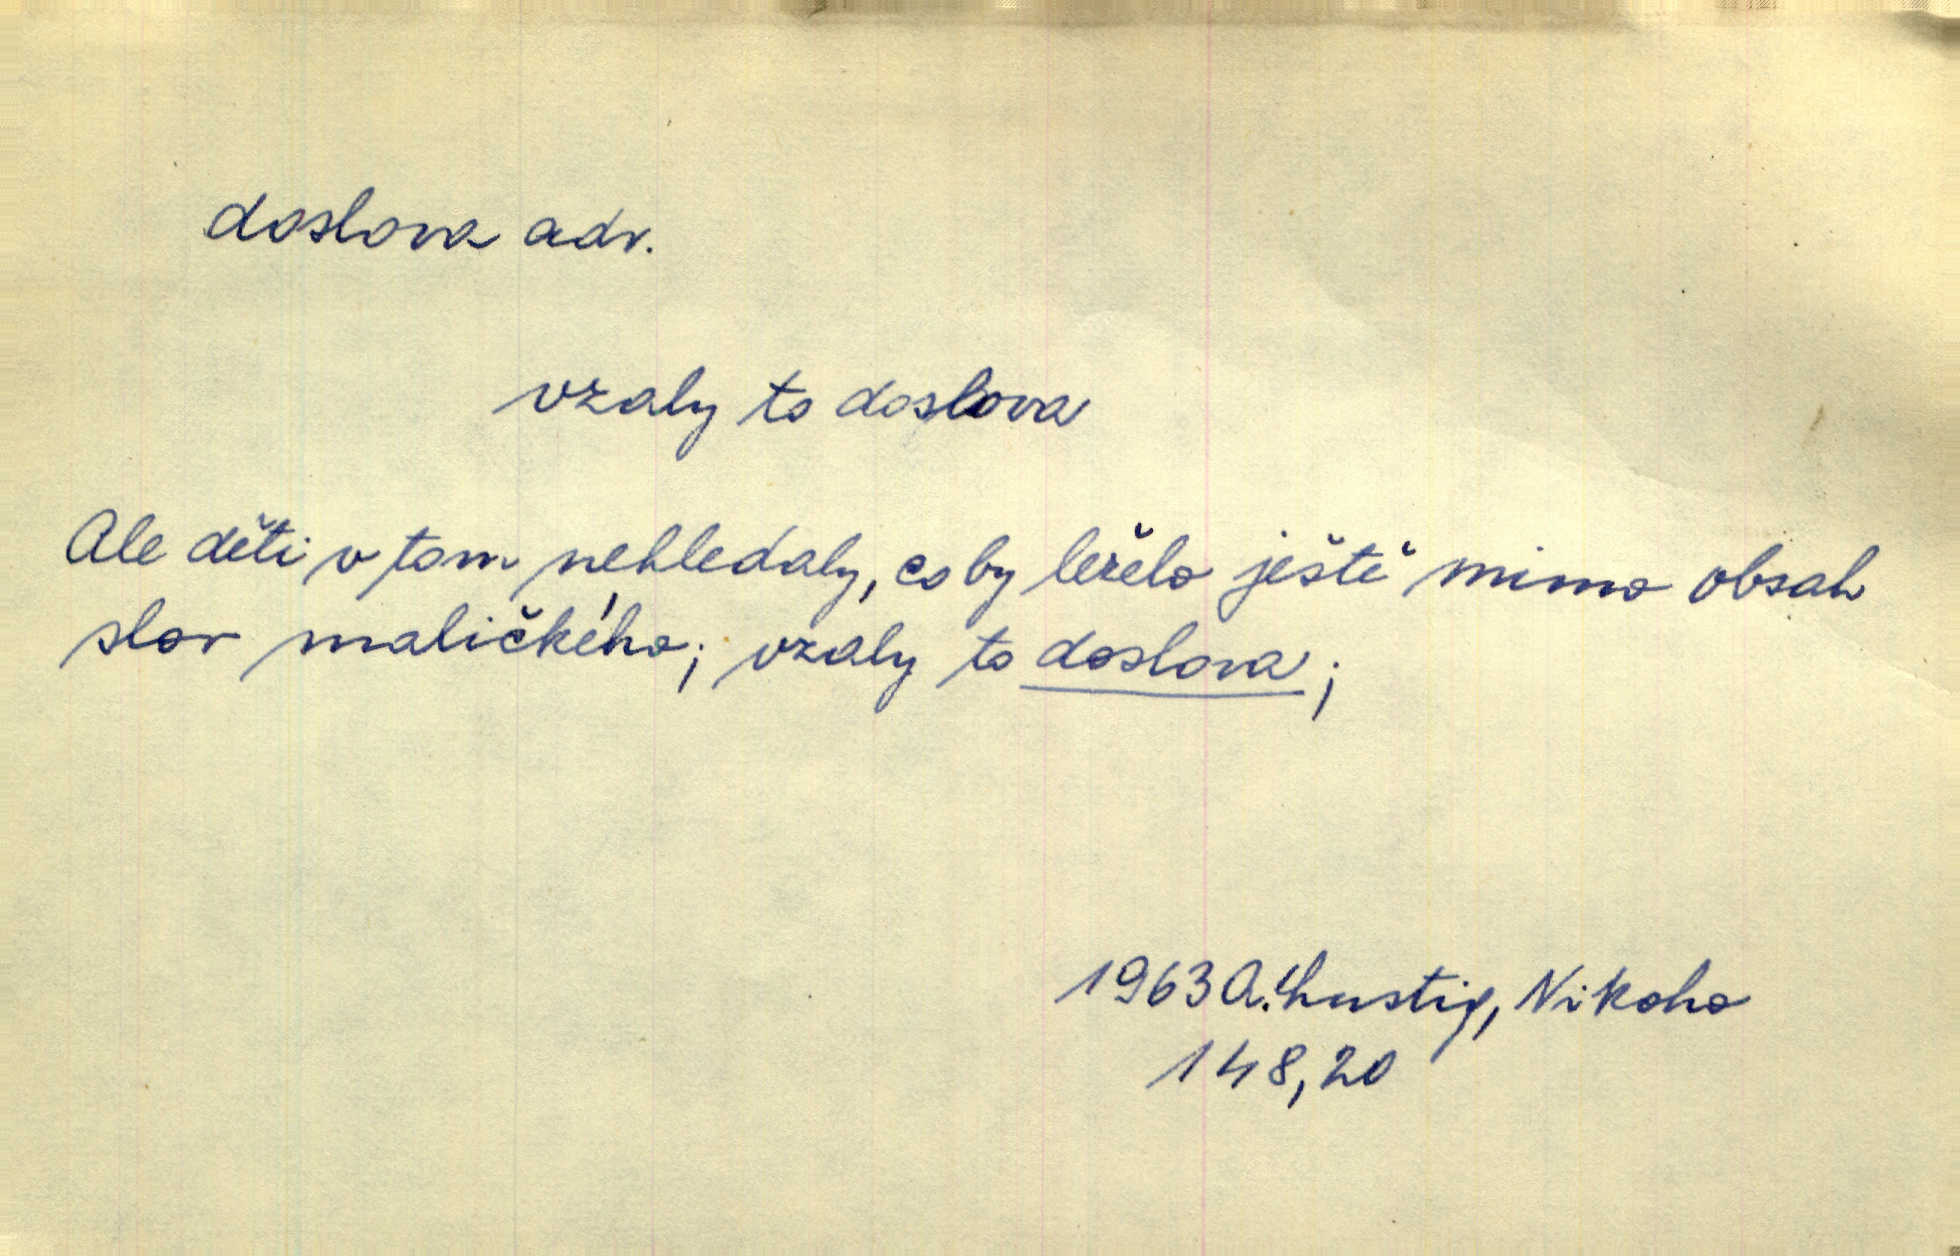 doslova adv.
vzaly to doslova
Ale děti v tom nehledaly, co by leželo ještě mimo obsah
slov maličkého; vzaly to doslova;
1963 A. Lustig, Nikoho
148,20